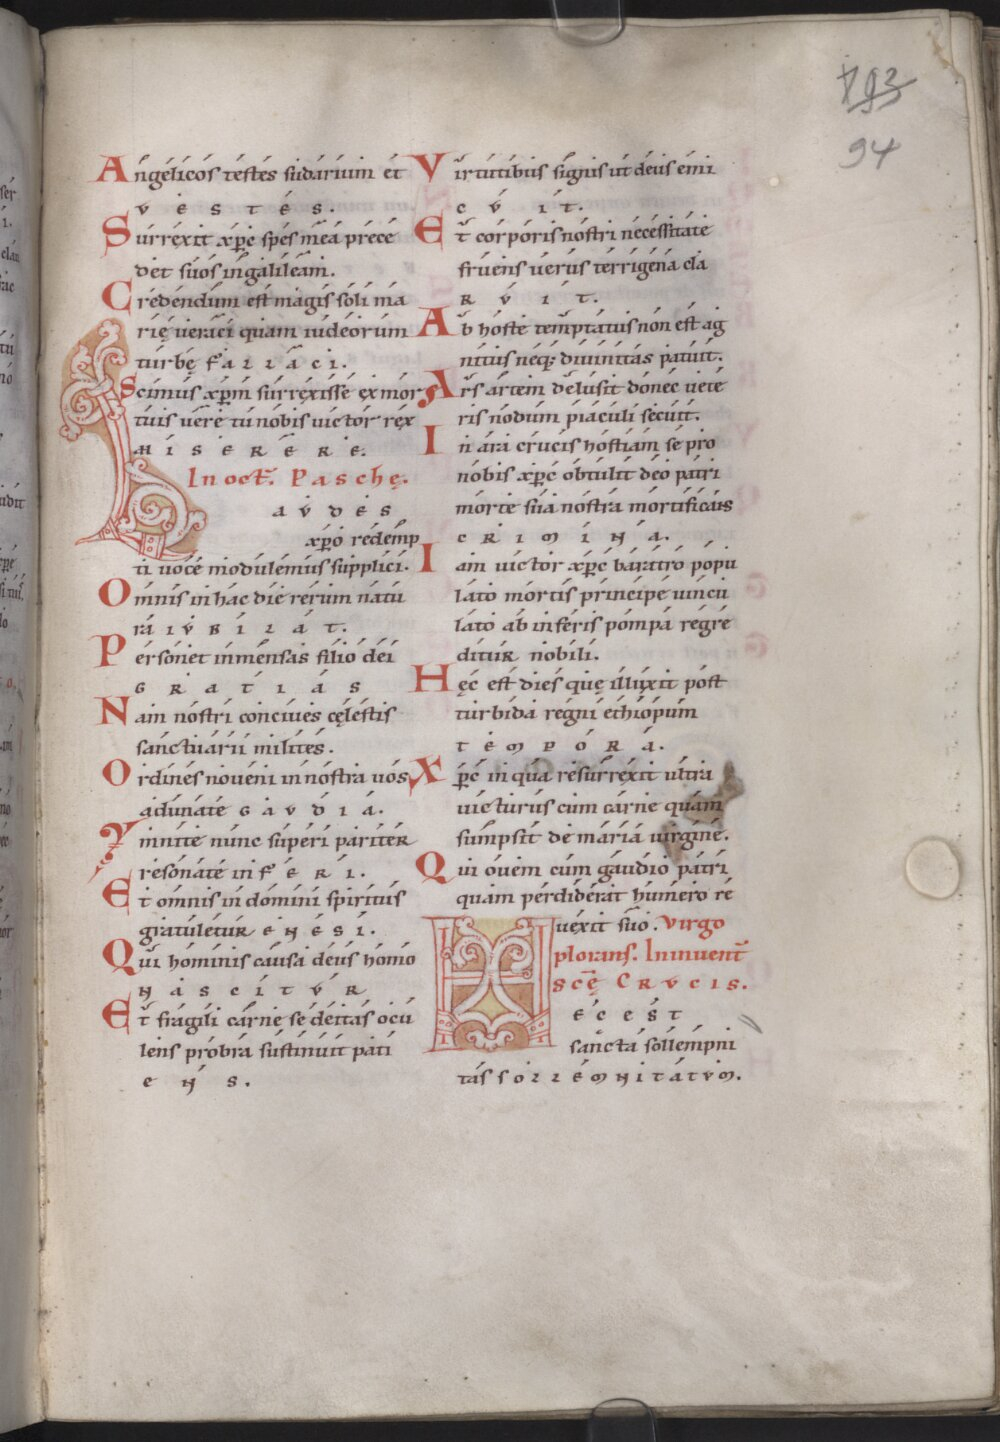 193
94
Angelicos testes sudarium et
VESTES.
Surrexit xp̅c spes mea prece
det suos in galileam.
Credendum est magis soli ma
rię veraci quam iudeorum
turbę FALLACI.
Scimus xp̅m surrexisse ex mor
tuis vere tu nobis victor rex
MISERERE.
In oct̅. Paschę.
LAVDES
xp̅o redemp
ti voce modulemus supplici.
Omnis in hac die rerum natu
ra IVBILAT.
Personet inmensas filio dei
GRATIAS
Nam nostri concives cęlestis
sanctuarii milites.
Ordines noveni in nostra vos
adunate GAVDIA.
Ymnite nunc superi pariter
resonate inFERI.
Et omnis in domini spiritus
gratuletur ENESI.
Qui hominis causa deus homo
NASCITVR
Et fragili carne se deitas ocu
lens probra sustinuit pati
ENS.
Virtutibus signis ut deus emi
CVIT.
Et corporis nostri necessitate
fruens verus terrigena cla
RVIT.
Ab hoste temptatus non est ag
nitus neq; divinitas patuit.
Ars artem delusit donec vete
ris nodum piaculi secuit.
In ara crucis hostiam se pro
nobis xp̅c obtulit deo patri
morte sua nostra mortificans
CRIMINA.
Iam victor xp̅c baratro popu
lato mortis principe vincu
lato ab inferis pompa regre
ditur nobili.
Hęc est dies quę illuxit post
turbida regni ethiopum
TEMPORA.
Xp̅c in qua resurrexit ultra
victurus cum carne quam
sumpsit de maria virgine.
Qui ovem cum gaudio patri
quam perdiderat humero re
vexit suo. Virgo
plorans. In invent̅
scę̅ CRVCIS.
HECEST
sancta sollempni
tas SOLLEMNITATVM.